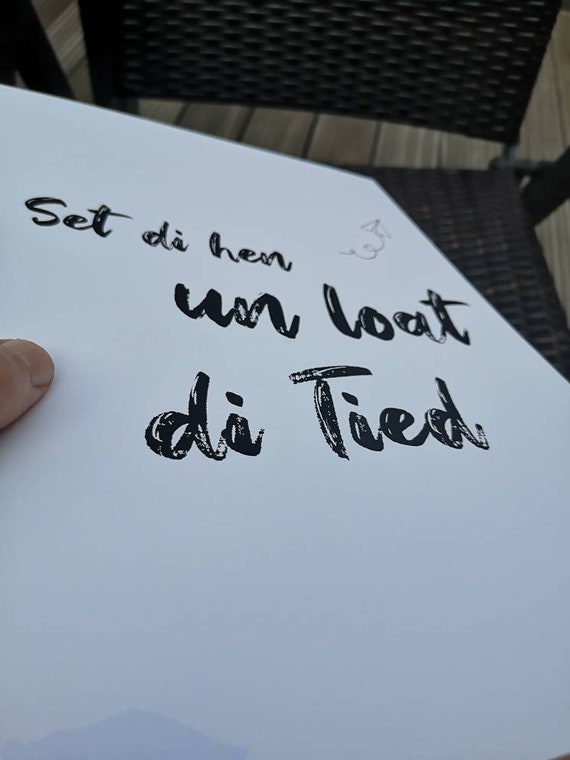 Set di hen
un loat
di Tied